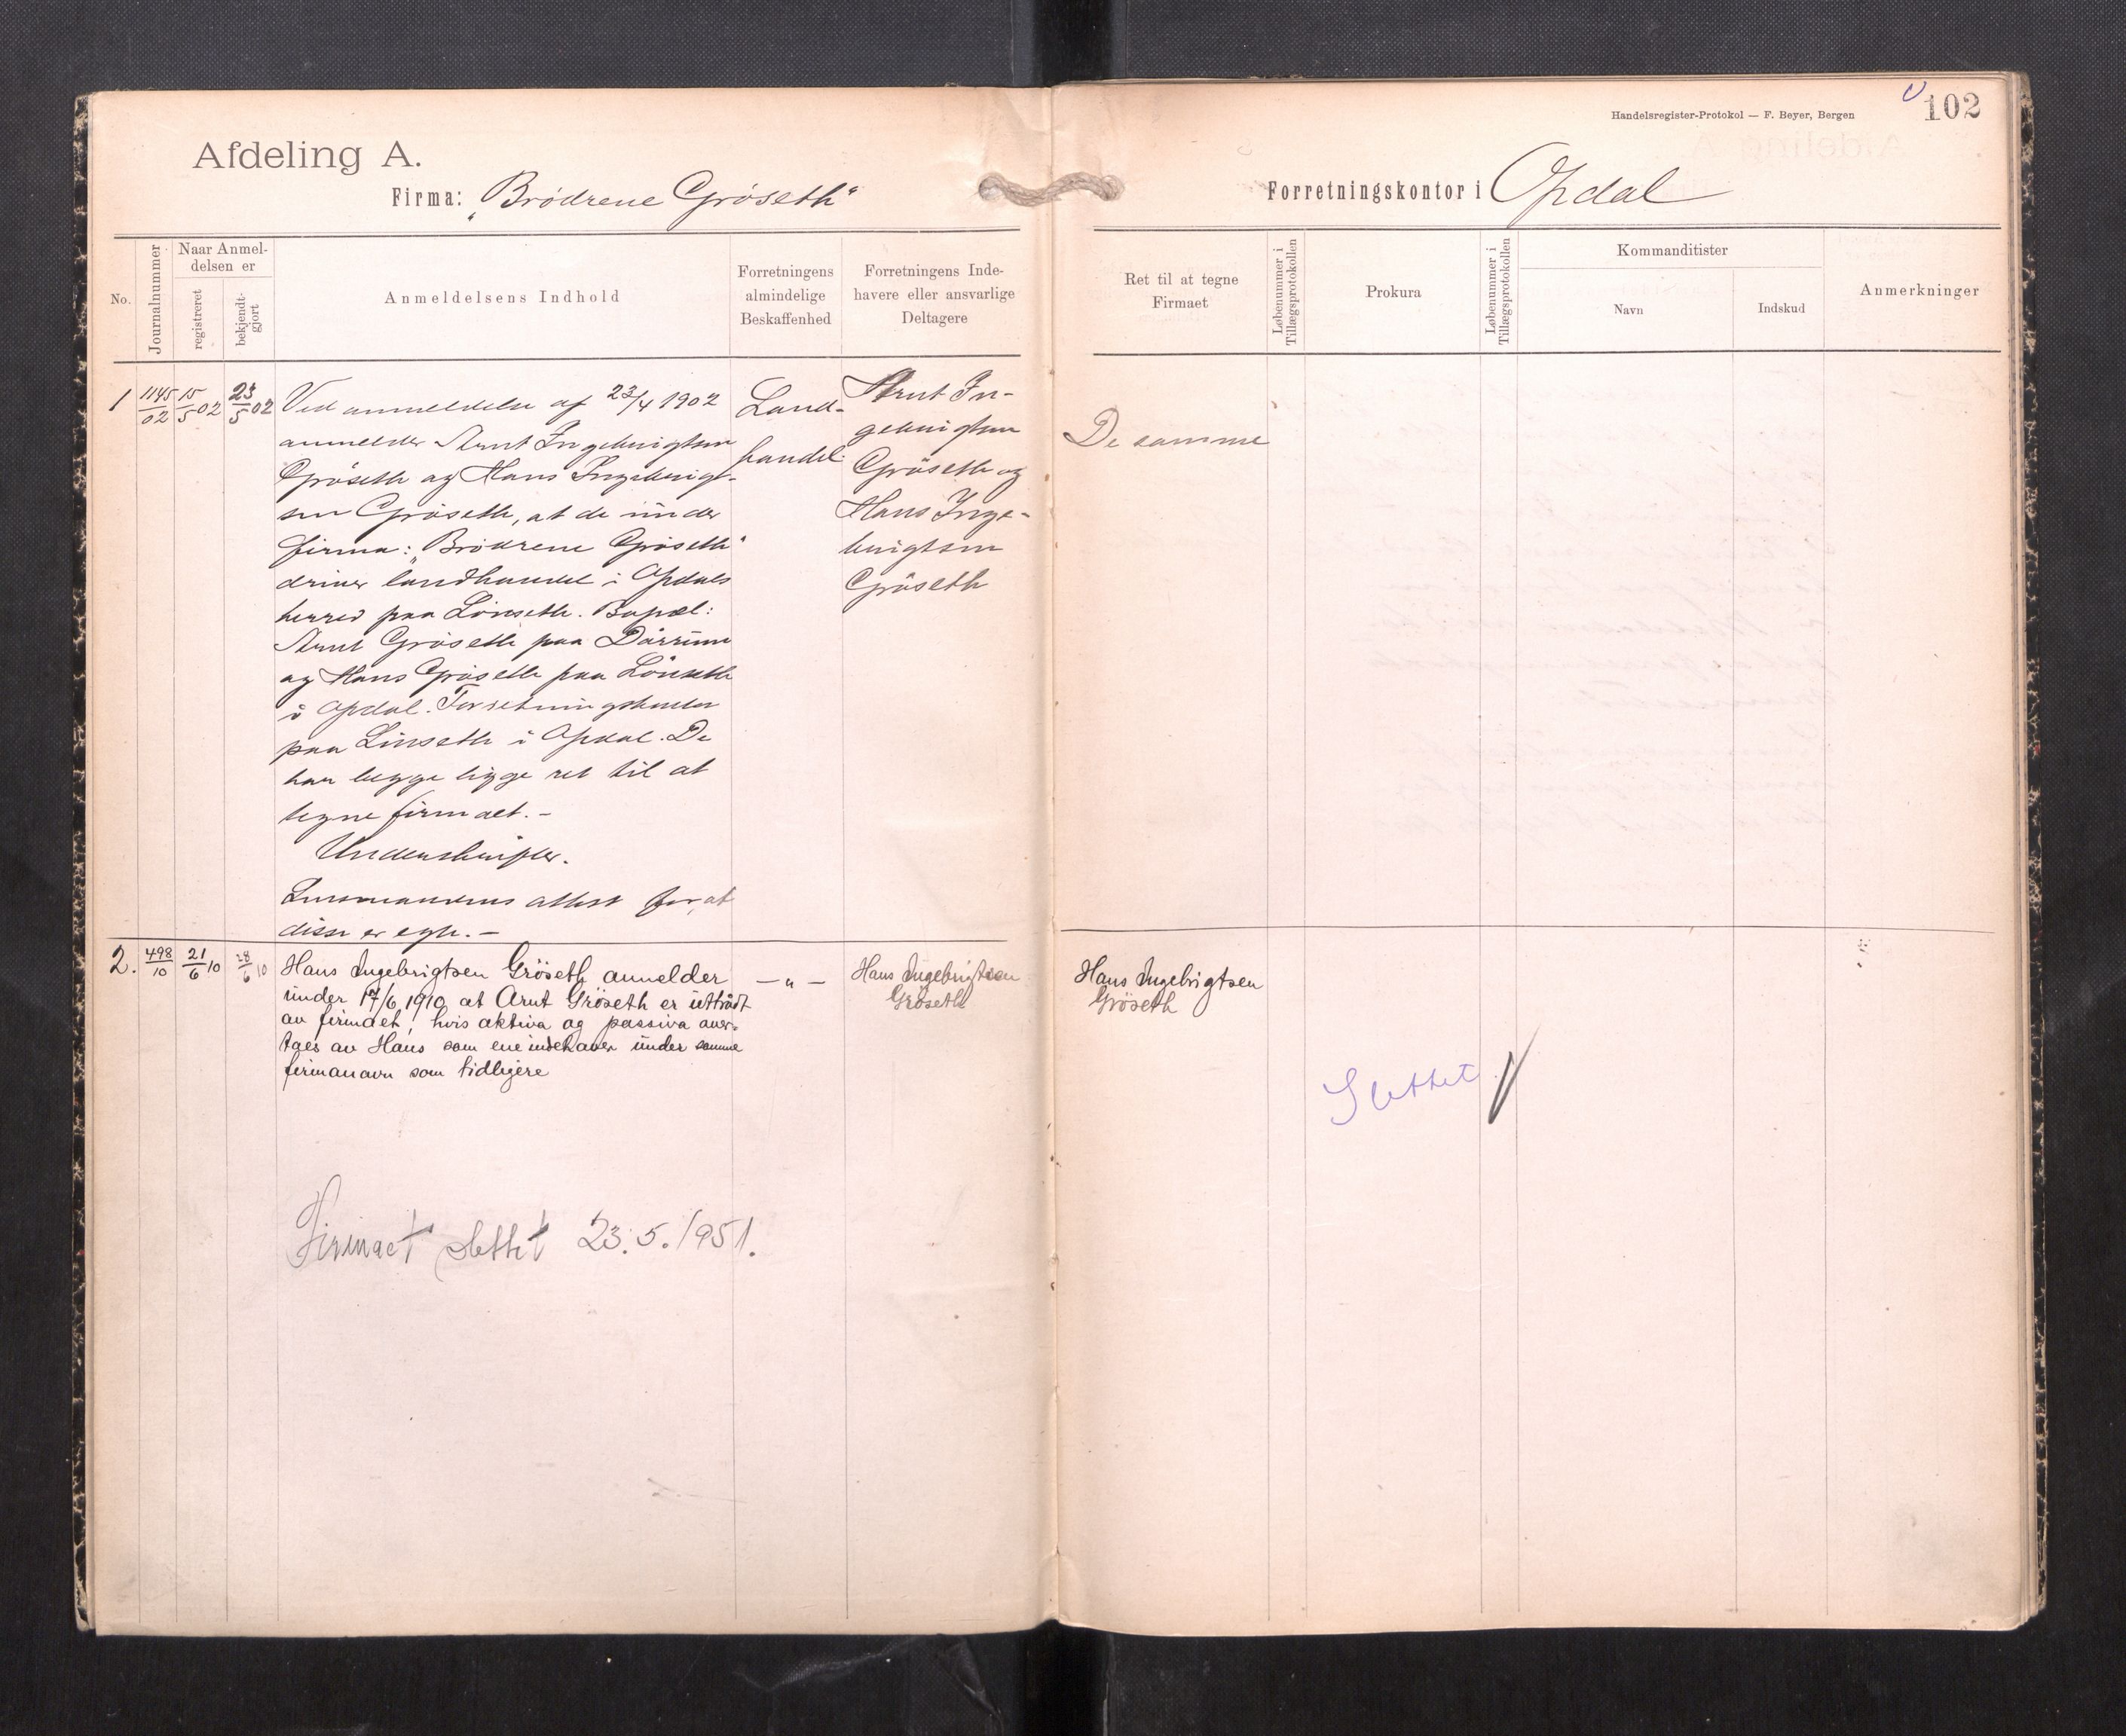 Afdeling A.
Firma: „Brödrene Gröseth"
No.
Journalnummer
Naar Anmel-
delsen er
registreret
bekjendt-
gjort
Anmeldelsens Indhold
Forretningens
almindelige
Beskaffenhed
Forretningens Inde-
havere eller ansvarlige
Deltagere
1
1145/02
15/5 02
23/5 02
Ved anmeldelse af 23/4 1902
anmelder Arnt Ingebrigtsen
Gröseth og Hans Ingebrigt-
sen Gröseth, at de under
firma: „Brödrene Gröseth"
driver landhandel i Opdals
herred paa Lönseth. Bopæl:
Arnt Gröseth paa
og Hans Gröseth paa Lönseth
i Opdal. Forretningskontor
paa Lönseth i Opdal. De
har begge ligge ret til at
tegne firmaet. -
Underskrifter.
Lensmandens attest for, at
disse er egte. -
Land-
handel
Arnt In-
gebrigtsen
Gröseth og
Hans Inge-
brigtsen
Gröseth
2.
498/10
21/6 10
28/6 10
Hans Ingebrigtsen Gröseth anmelder
under 17/6 1910 at Arnt Gröseth er uttraadt
av firmaet, hvis aktiva og passiva over-
taes av Hans som eneindehaver under samme
firmanavn som tidligere
— „ —
Hans Ingebrigtsen
Gröseth
Firmaet slettet 23.5.1951.
Handelsregister-Protokol — F. Beyer, Bergen
102
Forretningskontor i Opdal
Ret til at tegne
Firmaet
Løbenummer i
Tillægsprotokollen
Prokura
Løbenummer i
Tillægsprotokollen
Kommanditister
Navn
Indskud
Anmerkninger
De samme
Hans Ingebrigtsen
Gröseth
Slettet